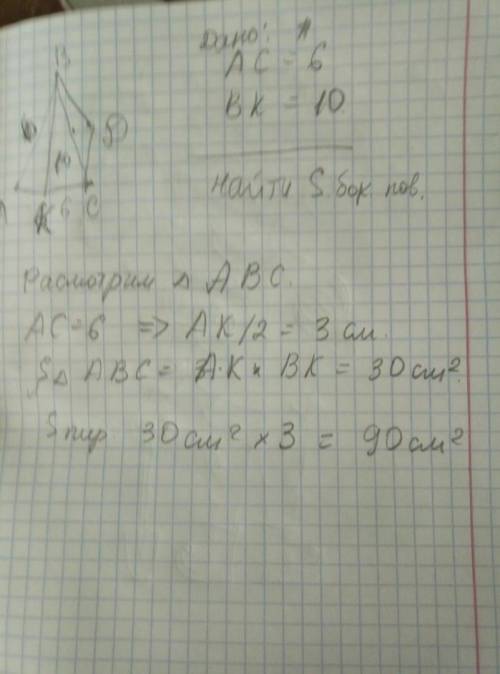 Дано:
AC = 6
BK = 10
Найти S бок пов.
B
D
10
A
K
6
C
Расмотрим △ ABC.
AC=6 => AK/2 = 3 см.
S△ ABC = AK × BK = 30 см²
Sпир 30 см² × 3 = 90 см²